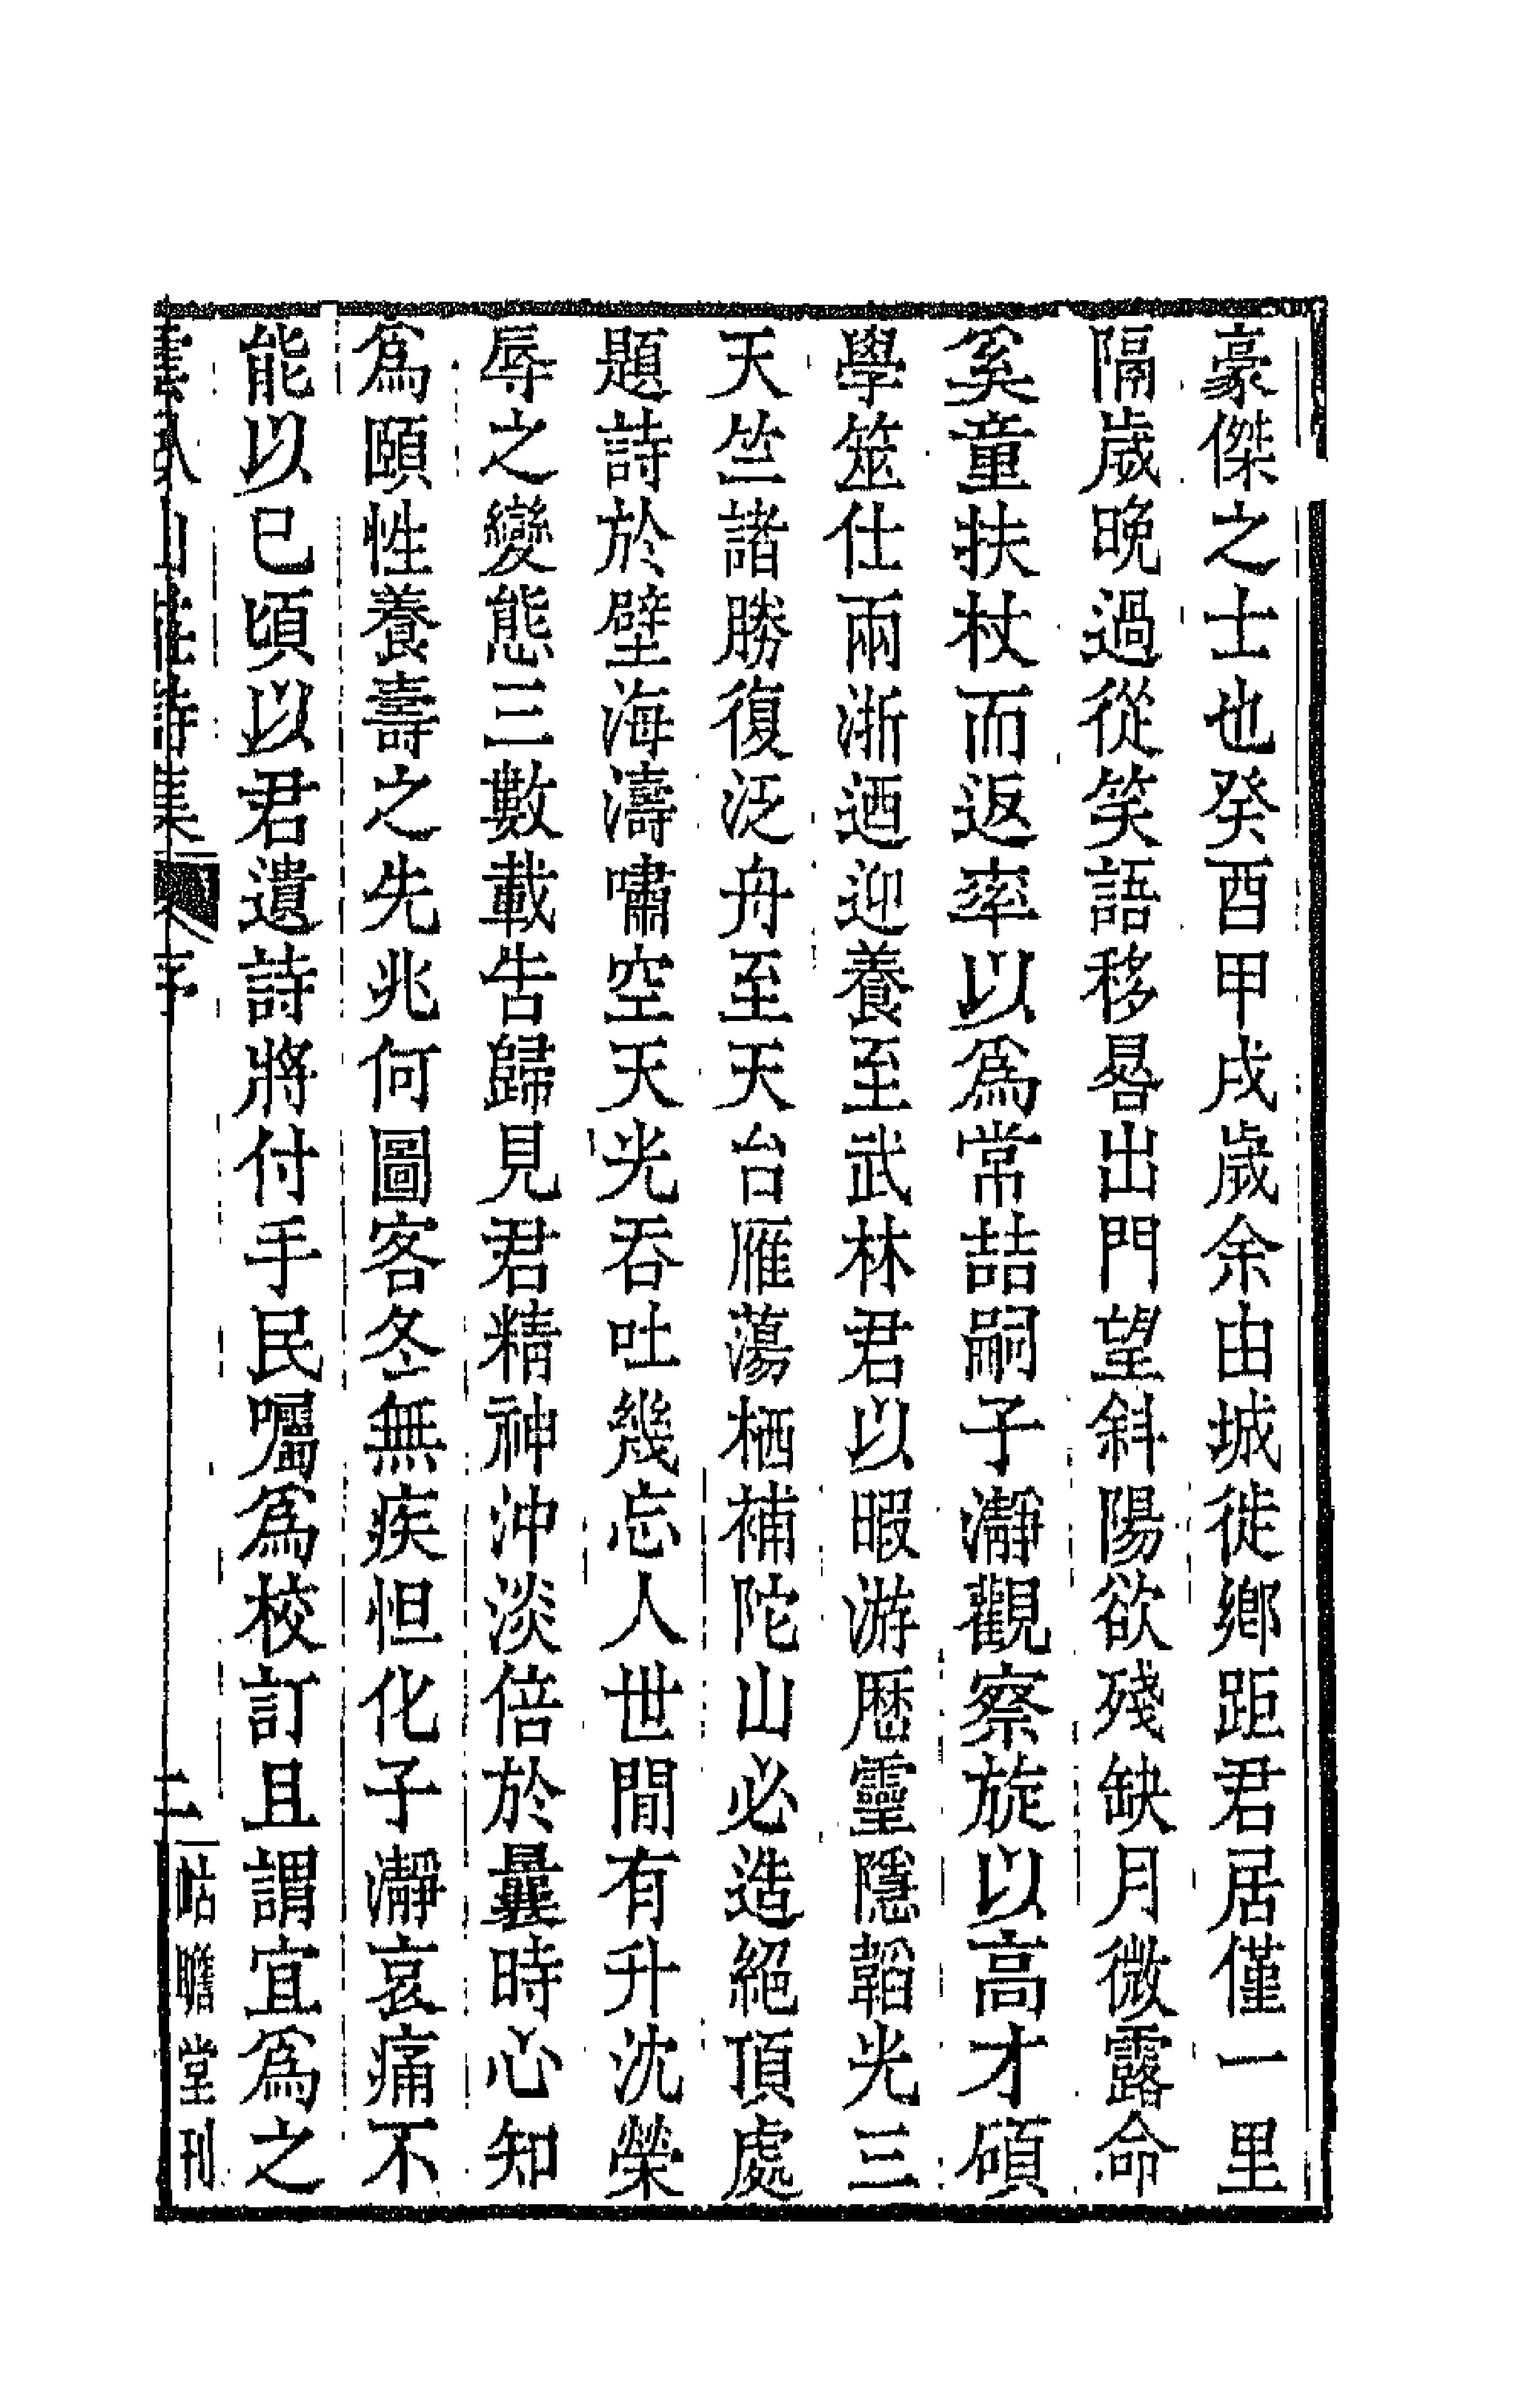 豪傑之士也癸酉甲戌歲余由城徙鄉距君居僅一里
隔歲晚過從笑語移晷出門望斜陽欲殘缺月微露命
奚童扶杖而返率以爲常喆嗣子瀞觀察旋以高才碩
學筮仕兩浙迺迎養至武林君以暇游歷靈隱韜光三
天竺諸勝復泛舟至天台雁蕩栖補陀山必造絕頂處
題詩於壁海濤嘯空天光吞吐幾忘人世間有升沈榮
辱之變態三數載告歸見君精神沖淡倍於曩時心知
爲頤性養壽之先兆何圖客冬無疾怛化子瀞哀痛不
能以已頃以君遺詩將付手民囑爲校訂且謂宜爲之
山 詩集 序 二 怙瞻堂刊